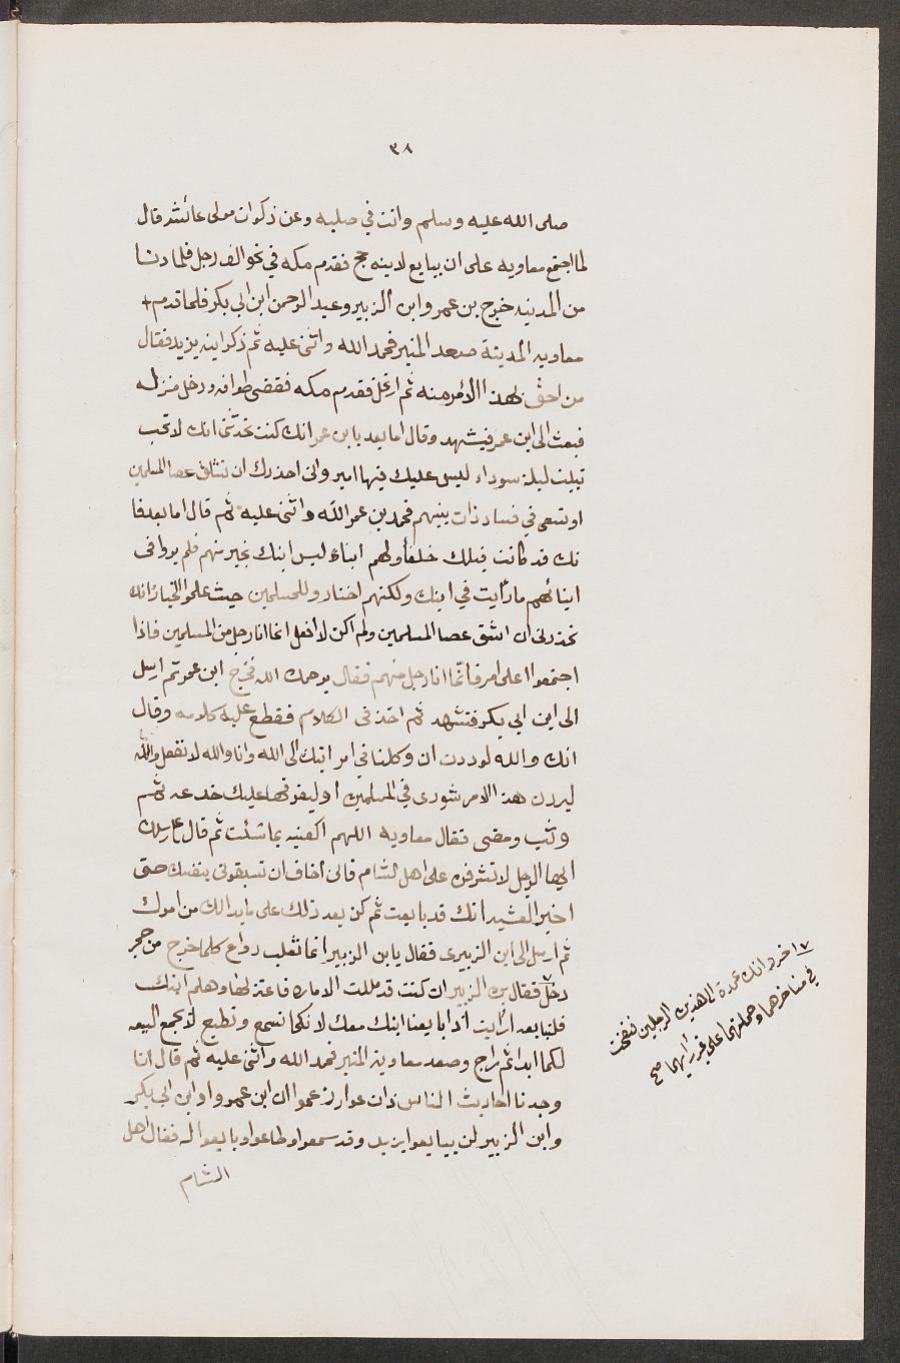 ٣٨
صلى الله عليه وسلم وانت في صلبه وعن ذكوان مولى عائشه قال
لما اجتمع معاويه على ان يبايع لابنه حج فقدم مكه في نحو الف رجل فلما دنا
من المدينه خرج بن عمر وابن الزبير وعبد الرحمن ابن ابي بكر فلما قدم +
معاويه المدينة صعد المنبر فحمد الله واثنى عليه ثم ذكر ابنه يزيد فقال
من احق بهذا الأمر منه ثم ارتحل فقدم مكه فقضى طوافه ودخل منزله
فبعث الى ابن عمر فتشهد وقال اما بعد يا بن عمر انك كنت تحدثني انك لا تحب
تبيت ليلة سوداء ليس عليك فيها امير واني احذرك ان تشق عصا المسلمين
او تسعى في فساد ذات بينهم فحمد بن عمر الله واثنى عليه ثم قال اما بعد فا
نك قد كانت قبلك خلفأ ولهم ابناء ليس ابنك بخير منهم فلم يروا في
ابنائهم ما رأيت في ابنك ولكنهم اختاروا للمسلمين حيث علموا الخيار وانك
تحذرني ان اشق عصا المسلمين ولم اكن لافعل انما انا رجل من المسلمين فاذا
اجتمعوا على امر فانما انا رجل منهم فقال يرحمك الله فخرج ابن عمر ثم ارسل
الى ابن ابي بكر فتشهد ثم اخذ في الكلام فقطع عليه كلامه وقال
انك والله لوددت ان وكلنا في امر ابنك الى الله وانا والله لا نفعل والله
لتردن هذا الامر شورى في المسلمين او ليفرقها عليك خدعه ثم
وثب ومضى فقال معاويه اللهم اكفنيه بما شئت ثم قال على رسلك
ايها الرجل لا تشرفن على اهل الشام فاني أخاف ان تسبقوني بنفسك حتى
اخبر العشيه انك قد بايعت ثم كن بعد ذلك على ما بدا لك من امرك
ثم ارسل الى ابن الزبيرى فقال يا بن الزبير انما ثعلب رواع كلما خرج من حجر
دخل فقال بن الزبير ان كنت قد مللت الاماره فاعتزلها وهلم ابنك
فلنبايعه أرايت أذا بايعنا ابنك معك لا نكما نسمع ونطيع لا تجمع البيعه
لكما ابدا ثم راح وصعد معاوية المنبر فحمد الله واثنى عليه ثم قال انا
وجدنا احاديث الناس ذات عوار زعموا ان ابن عمر وابن ابي بكر
وابن الزبير لن يبايعوا يزيد وقد سمعوا وطاعوا وبايعوا له فقال اهل
الشام
٧ اخر وانك عمدة الى هذين الرجلين فنفخت
في مناخرهما وحملتهما على غير رايهما صح